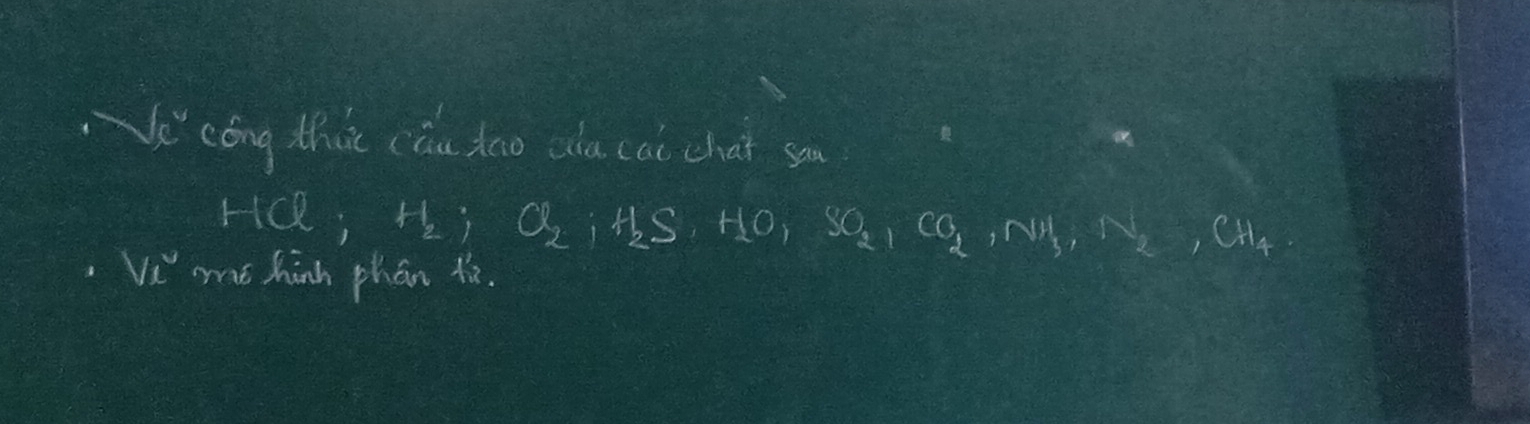 . Vẽ công thức cấu tạo của các chất sau.
HCl ; H₂ ; Cl₂ ; H₂S, H₂O, SO₂, CO₂, NH₃, N₂, CH₄.
. Vẽ mô hình phân tử.